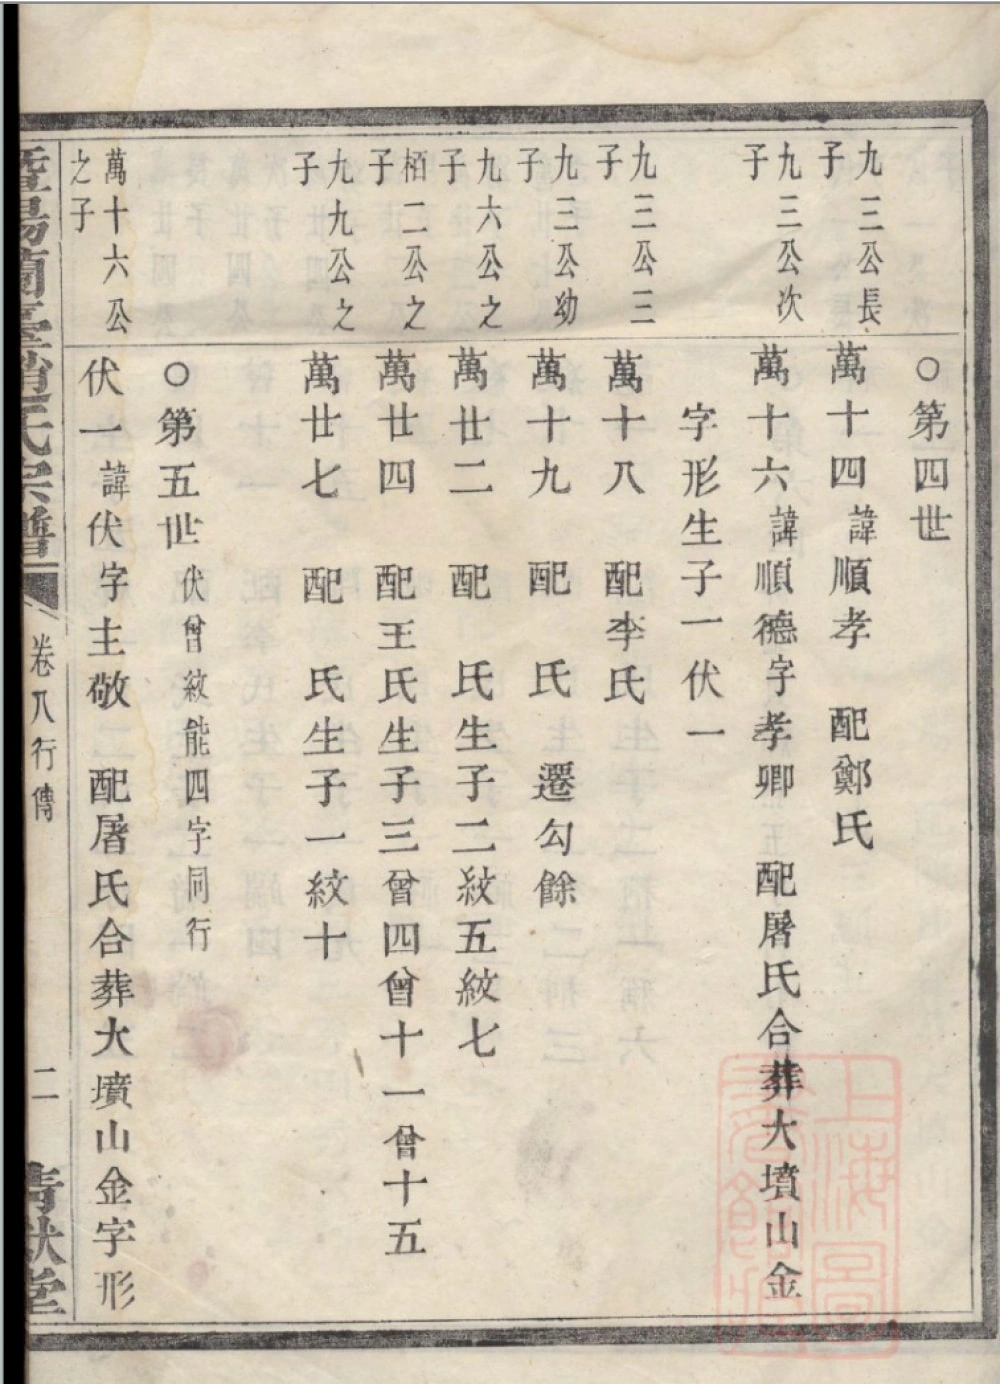 ○第四世
九三公長子
萬十四諱順孝　配鄭氏
九三公次子
萬十六諱順德字孝卿　配屠氏合葬大墳山金
字形生子一伏一
九三公三子
萬十八　配李氏
九三公幼子
萬十九　配　氏　遷勾餘
九六公之子
萬廿二　配　氏生子二紋五紋七
栢二公之子
萬廿四　配王氏生子三曾四曾十一曾十五
九九公之子
萬廿七　配　氏生子一紋十
○第五世伏曾紋能四字同行
萬十六公之子
伏一諱伏字主敬　配屠氏合葬大墳山金字形
暨陽蘭臺趙氏宗譜
卷八行傳
二
清獻堂
上海圖書館藏